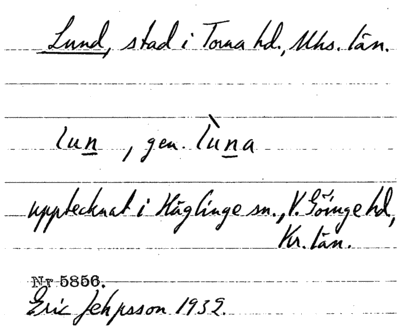 Lund, stad i Torna hd., Mhs. län.
lun, gen. lùna
upptecknat i Häglinge sn., V. Göinge hd,
Kr. län.
Nr 5856.
Eric 1932